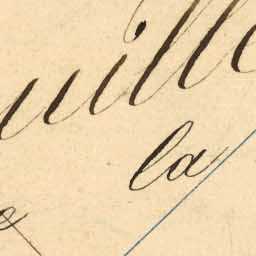 uille
la